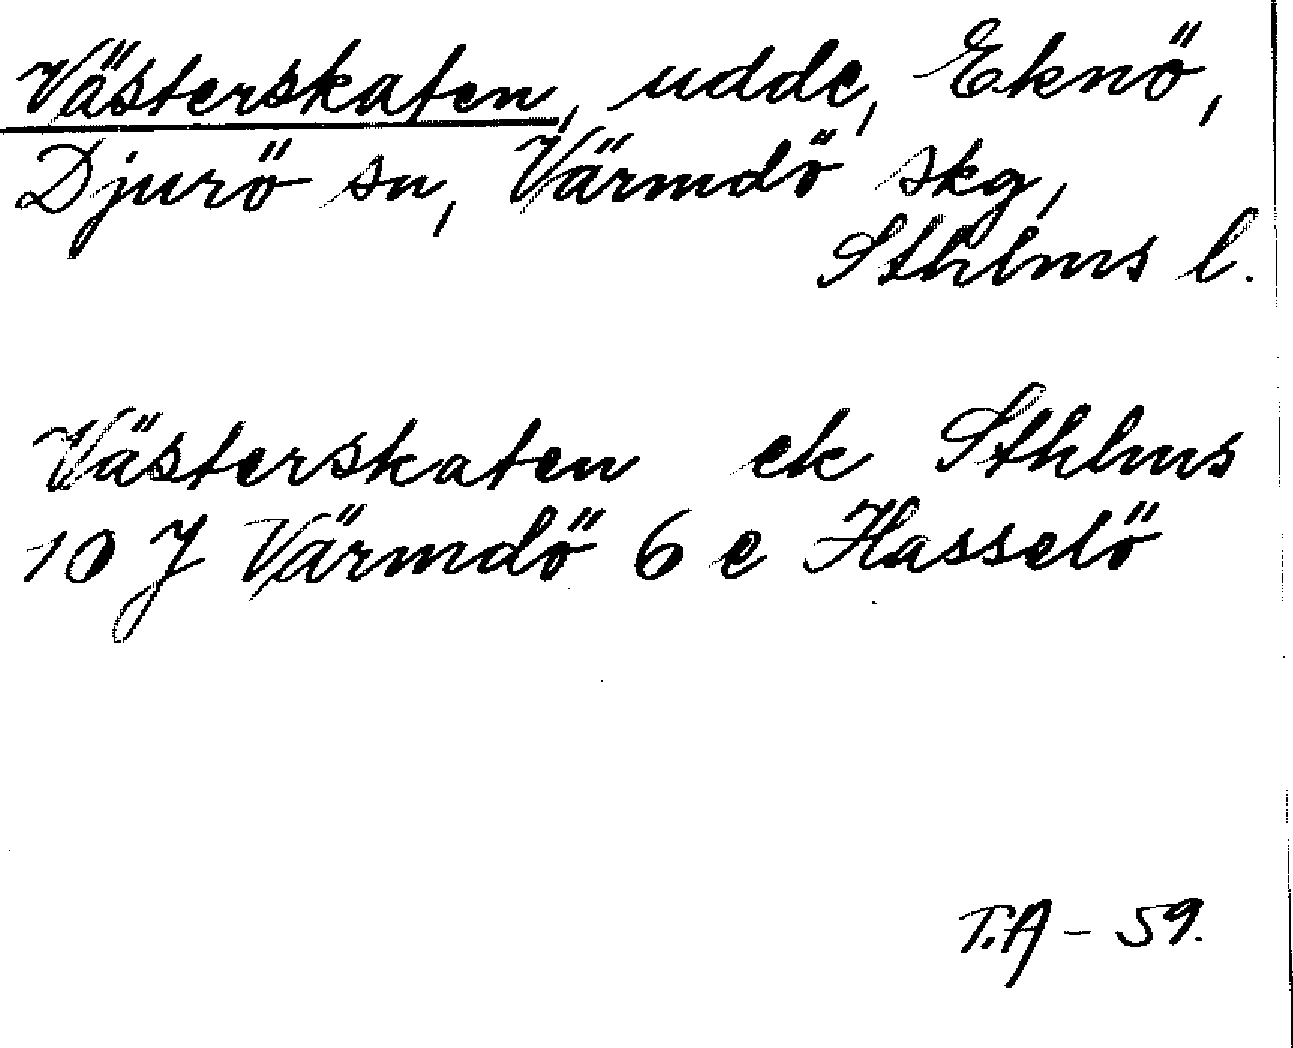 Västerskaten, udde, Eknö,
Djurö sn, Värmdö skg,
Sthlms l.
Västerskaten ek Sthlms
10 J Värmdö 6 e Hasselö
T.A - 59.